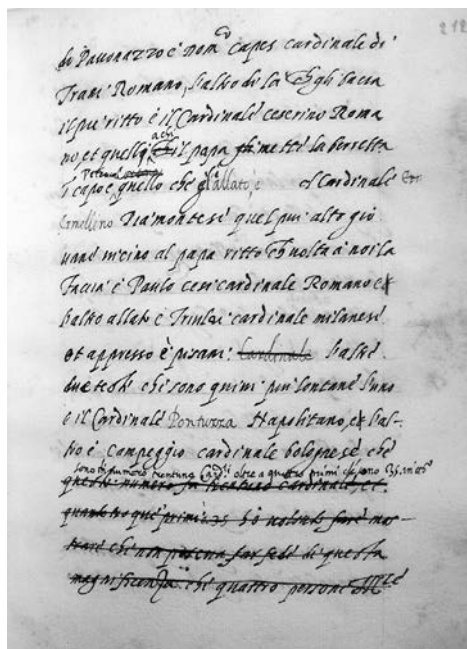 di Pauonazzo è nom.co capes cardinale di
Trani Romano, l'altro
il piu ritto è il Cardinale ceserino Roma
no et quello a chi il papa mette la berretta
i capo è quello che gl'allato, è el Cardinale
Ermellino quel piu alto gio
uane uicino al papa ritto ch uolta a noi la
faccia è Paulo cesi cardinale Romano et
l'altro allato è Triulzi cardinale milanese
et appresso è pisani: Cardinale l'altre
due teste che sono quiui piu lontane l'uno
è il Cardinale Pontuzza Napolitano, et l'al-
tro è Campeggio cardinale bolognese che
sono di numero trentuna Card.li oltre a quattro primi che sono 35 in
questo numero fu trentuno cardinale, et
quattro que primi 35 ho uoluto fare mos-
trare che non poteua far fede di questa
magnificenza che quattro persone